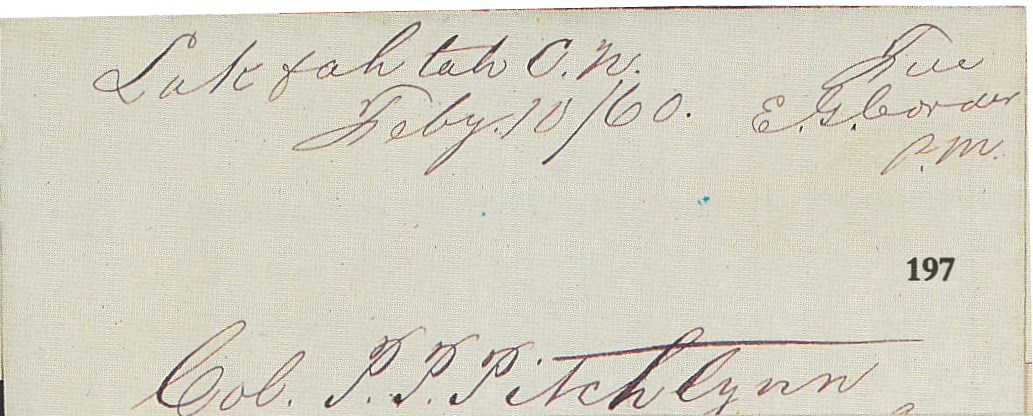 Luk fah tah C.N.
Feby. 10/60.
Free
E. G. Corder
P.M.
197
Col. P. P. Pitchlynn